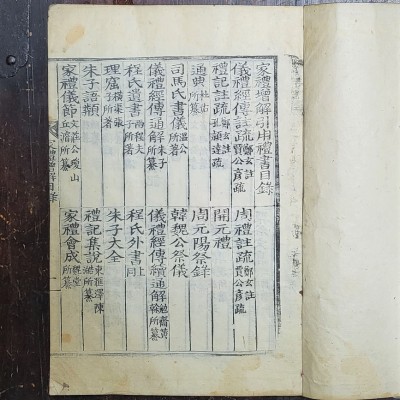 家禮增解引用禮書目錄
儀禮經傳註疏 鄭玄註 賈公彥疏
周禮註疏 鄭玄註 賈公彥疏
禮記註疏 鄭玄註 孔穎達疏
開元禮
通典 杜佑所纂
周元陽祭錄
司馬氏書儀 溫公
韓魏公祭儀
儀禮經傳通解 朱子所纂
儀禮經傳續通解 勉齋黃榦所纂
程氏遺書 兩程夫子
程氏外書 上同
理窟 橫渠張子所著
朱子大全
朱子語類
禮記集說 東滙澤陳澔所纂
家禮儀節 文莊公瓊山丘濬所纂
家禮會成 所纂
家禮增解目錄